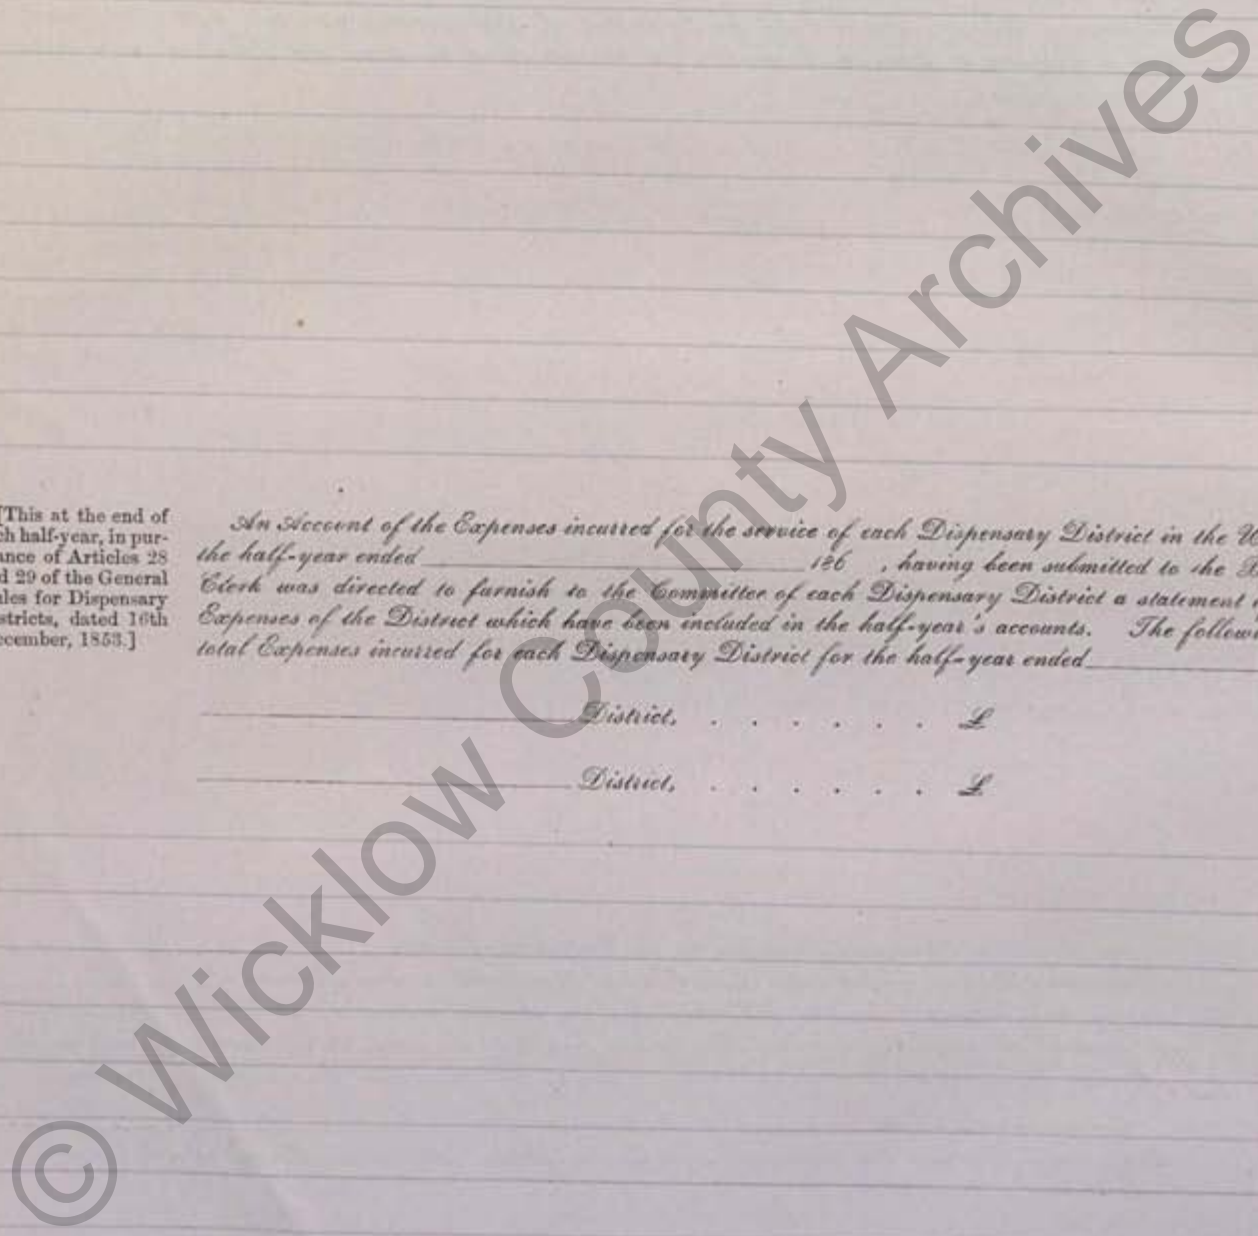 [This at the end of
ch half-year, in pur-
ance of Articles 28
d 29 of the General
ules for Dispensary
stricts, dated 16th
ecember, 1853.]
An Account of the Expenses incurred for the service of each Dispensary District in the
the half-year ended 186 , having been submitted to the
Clerk was directed to furnish to the Committee of each Dispensary District a statement
Expenses of the District which have been included in the half-year's accounts. The follow
total Expenses incurred for each Dispensary District for the half-year ended
District, . . . . . . £
District, . . . . . . £
© Wicklow County Archives